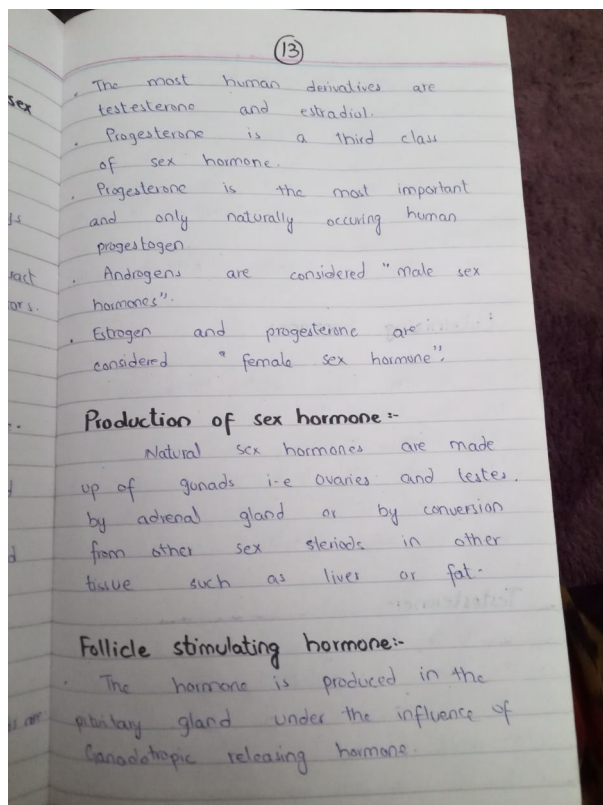 13
. The most human derivatives are
testesterone and estradiol.
. Progesterone is a third class
of sex hormone.
. Progesterone is the most important
and only naturally occuring human
progestogen
. Androgens are considered "male sex
hormones".
. Estrogen and progesterone are
considered " female sex hormone".
Production of sex hormone :-
Natural sex hormones are made
up of gonads i-e ovaries and testes.
by adrenal gland or by conversion
from other sex steriods in other
tissue such as liver or fat-
Follicle stimulating hormone:-
. The hormone is produced in the
pituitary gland under the influence of
Ganadotropic releasing hormone.
sex
ract
ors.